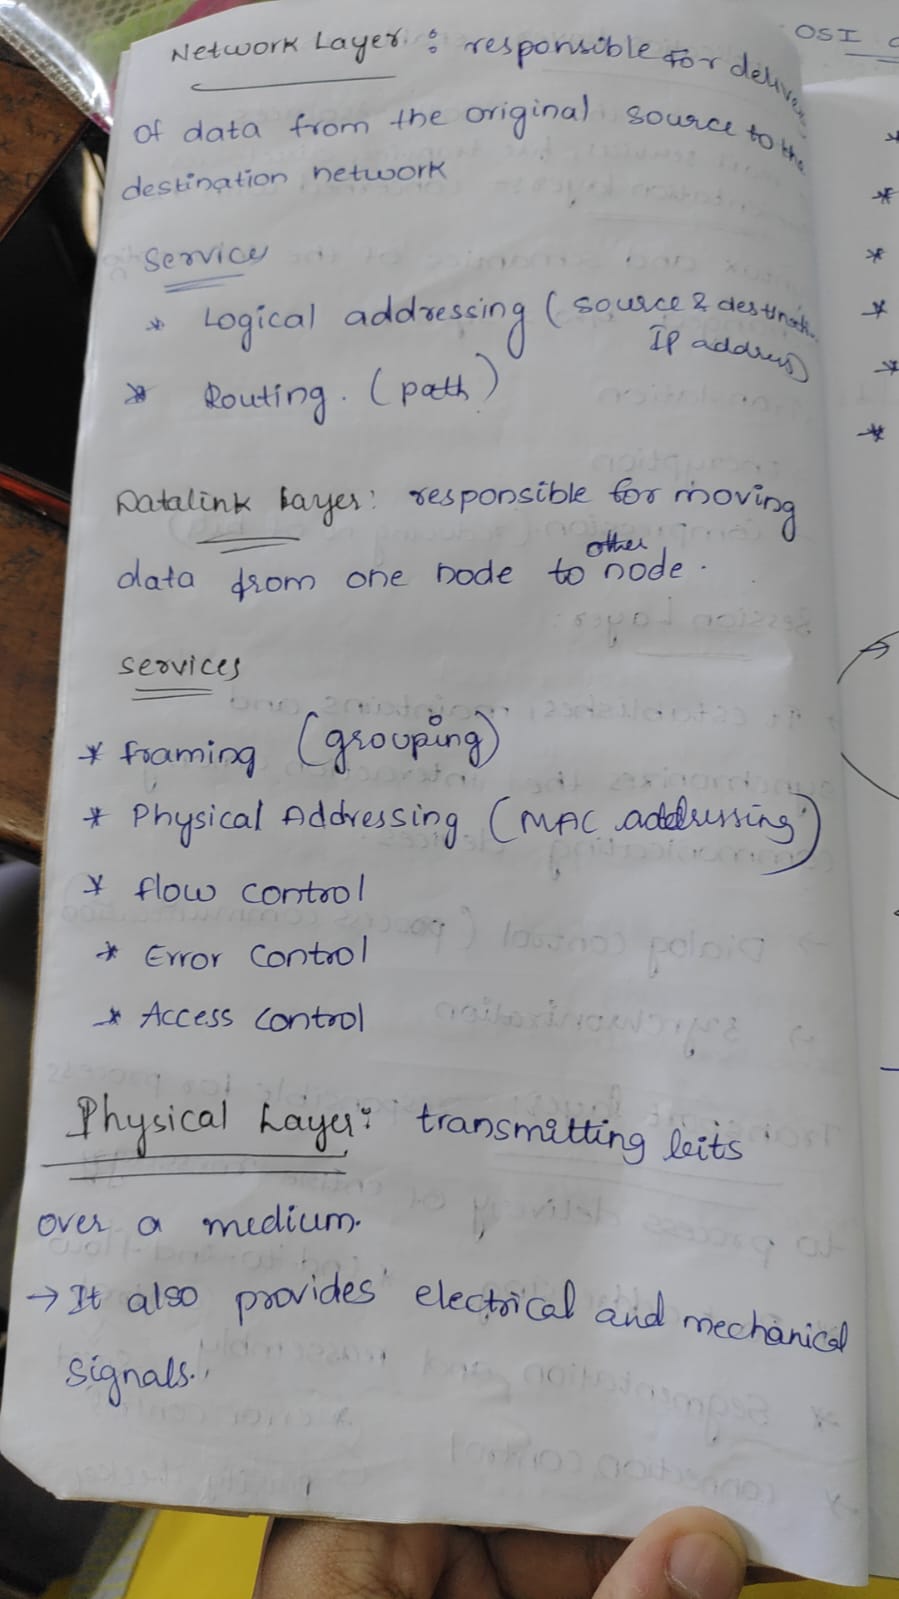 Network Layer : responsible for delivery
of data from the original source to the
destination network
Service
* Logical addressing (source & destinati.
IP address)
* Routing. (path)
Datalink Layer: responsible for moving
data from one node to other node.
services
* framing (grouping)
* Physical Addressing (MAC addressing)
* flow control
* Error control
* Access control
Physical Layer: transmitting bits
over a medium.
→ It also provides electrical and mechanical
signals.
OSI
*
*
*
*
*
*